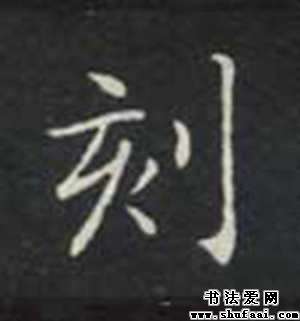 刻
书法爱网
www.shufaai.com